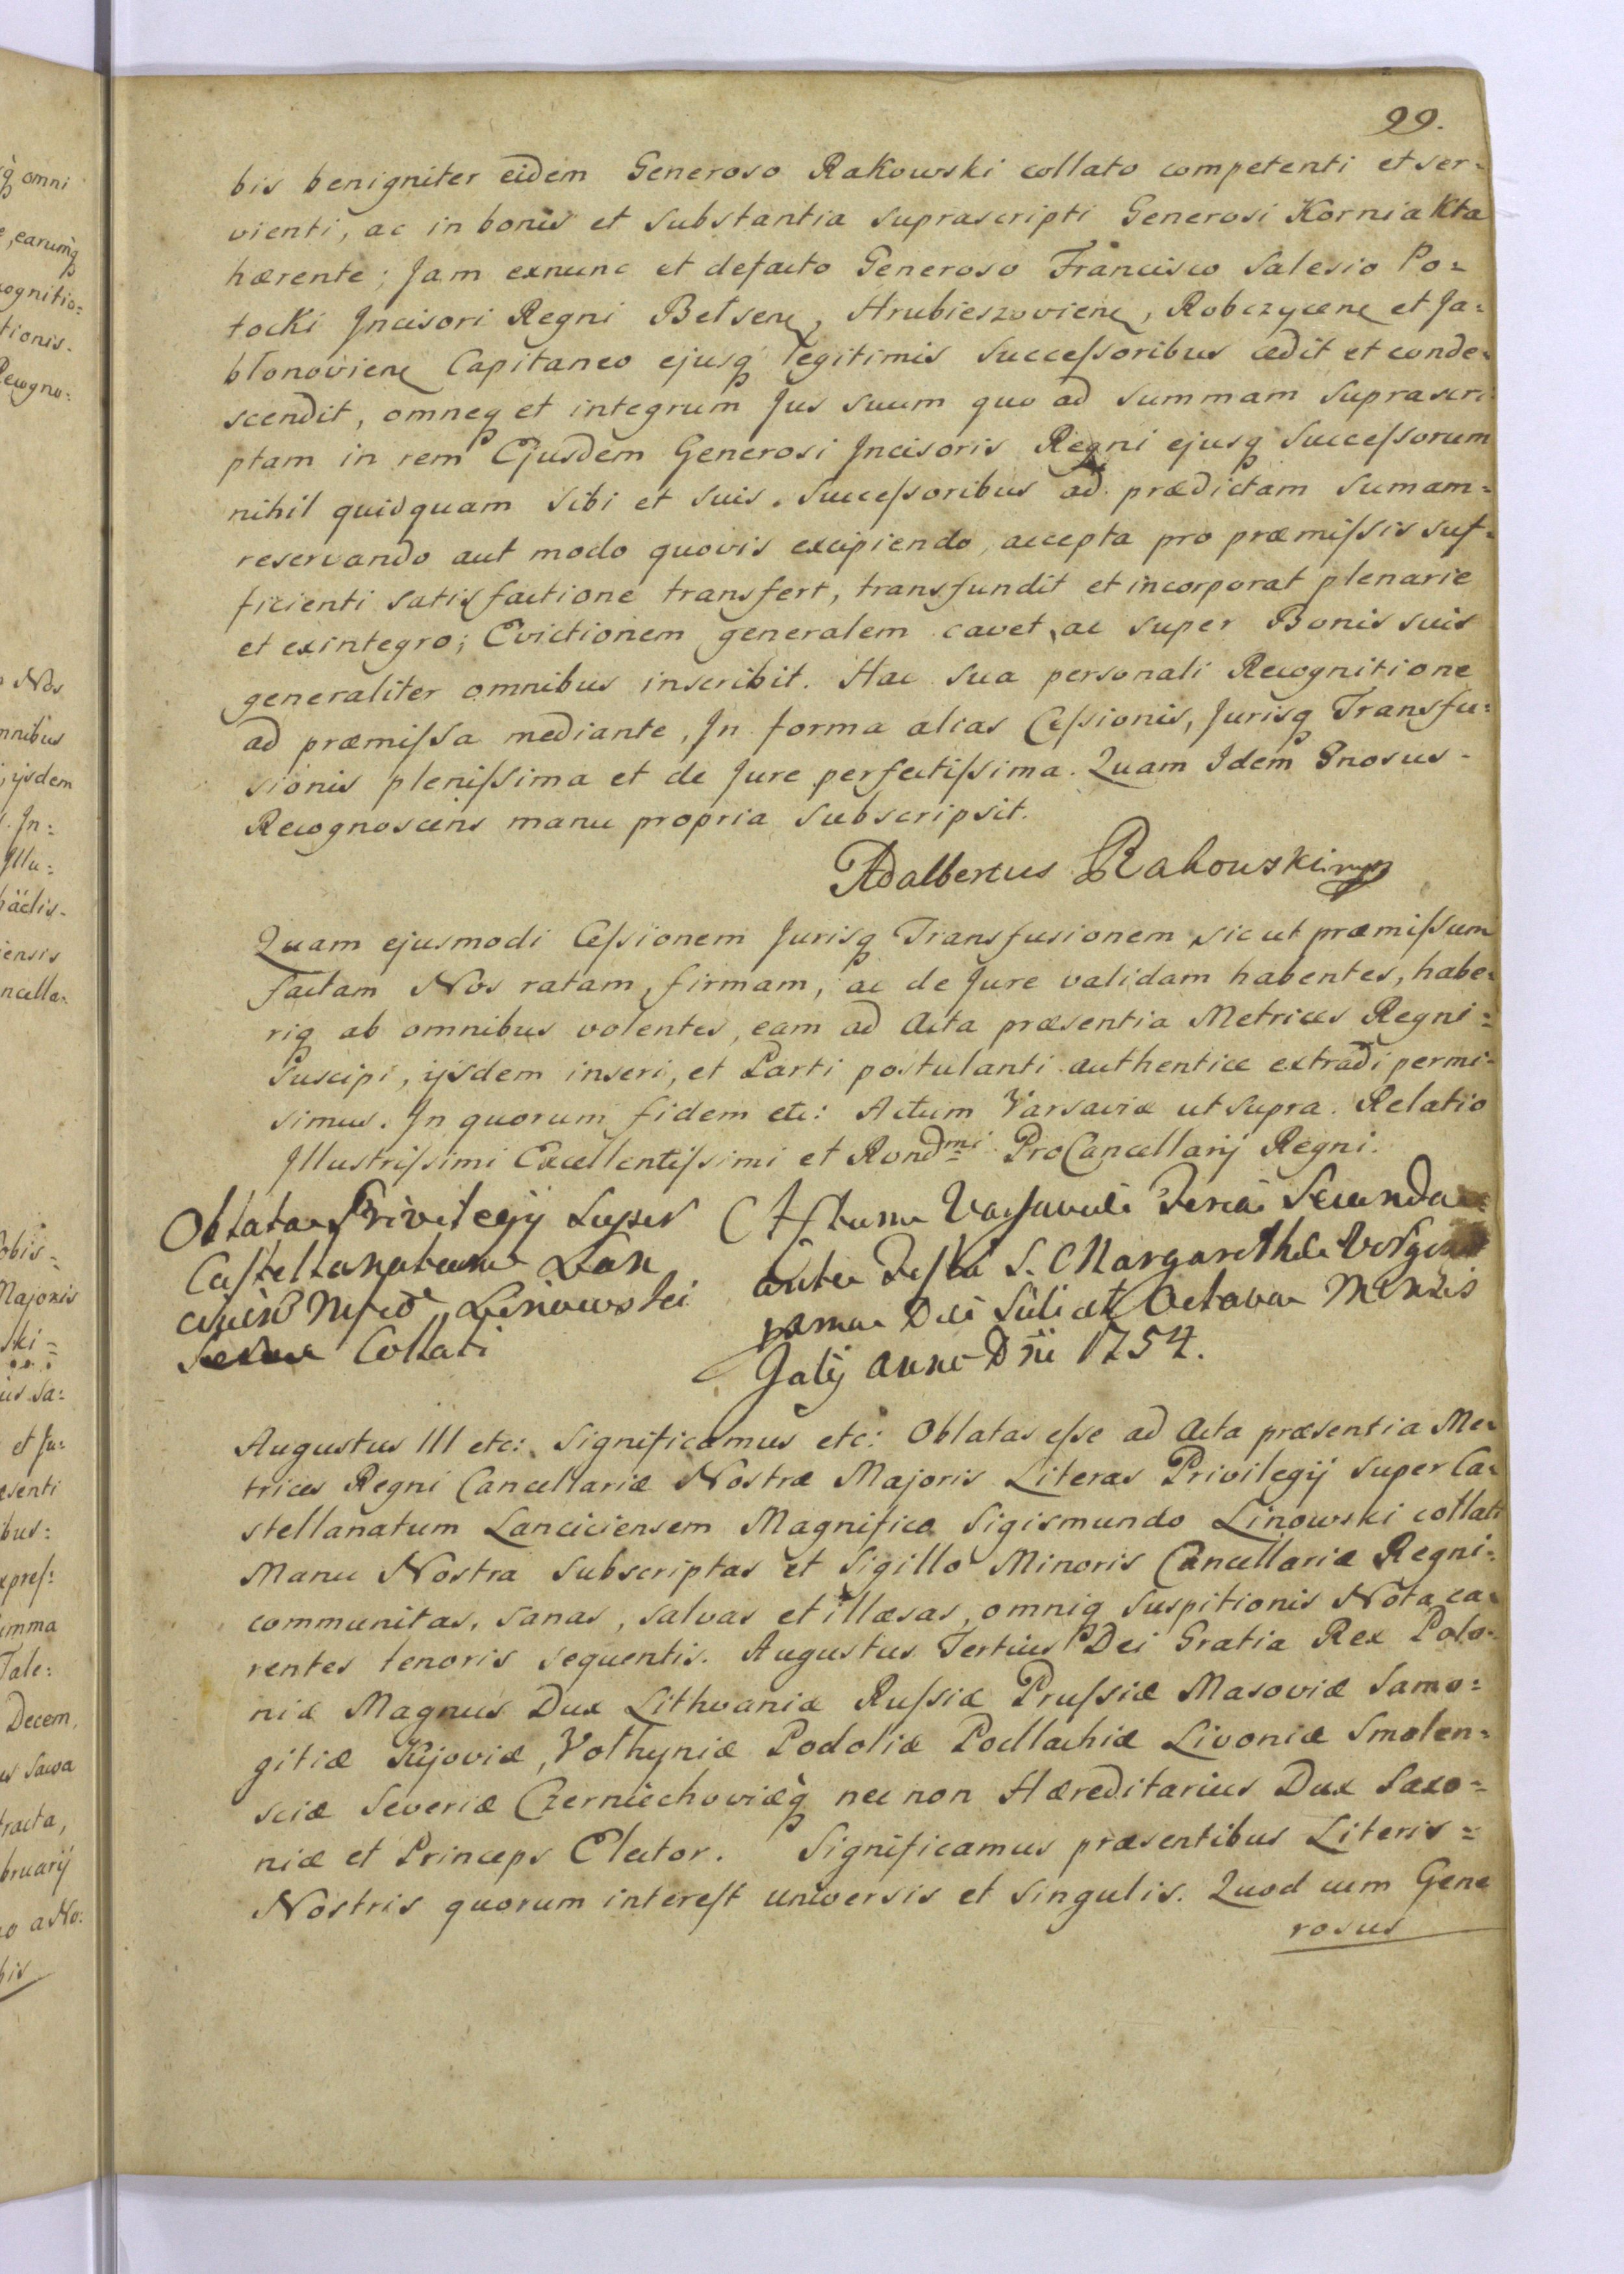 99.
bis benigniter eidem Generoso Rakowski collato competenti et ser=
vienti, ac in bonis et substantia suprascripti Generosi Korniakta
hærente; Jam exnunc et defacto Generoso Francisco Salesio Po=
tocki Incisori Regni Belsen, Hrubieszovien, Robczycen et Ja=
blonovien Capitaneo ejusq legitimis Successoribus cedit et conde=
scendit, omneq et integrum Jus suum quo ad summam suprascri
ptam in rem Ejusdem Generosi Incisoris Regni ejusq Successorum
nihil quidquam sibi et suis Successoribus ad prædictam sumam=
reservando aut modo quovis excipiendo, accepta pro præmissis suf=
ficienti satisfactione transfert, transfundit et incorporat plenarie
et exintegro; Evictionem generalem cavet, ac super Bonis suis
generaliter omnibus inscribit. Hac sua personali Recognitione
ad præmissa mediante, In forma alias Cessionis, Jurisq Transfu=
sionis plenissima et de Jure perfectissima. Quam Idem Gnosus-
Recognoscens manu propria subscripsit.
Adalbertus Rakowski mp
Quam ejusmodi Cessionem Jurisq Transfusionem sicut præmissum
factam Nos ratam, firmam, ac de Jure validam habentes, habe=
riq ab omnibus volentes, eam ad Acta præsentia Metrices Regni=
Suscipi, ijsdem inseri, et Parti postulanti authentice extradi permi=
simus. In quorum fidem etc: Actum Varsaviæ ut supra. Relatio
Illustrissimi Excellentissimi et Rondmi ProCancellarij Regni.
Oblata Privilegij super
Castellanatum Lan
ciciens Mfco Linowski
Collati
Actum Varsaviæ Feria Secunda
ante Festa S. Margarethæ Virginis
Die Scilicet Octava Mensis
Julij Anno Dni 1754.
Augustus III etc: Significamus etc: Oblatas esse ad Acta præsentia Me=
trices Regni Cancellariæ Nostræ Majoris Literas Privilegij super Ca=
stellanatum Lanciciensem Magnifico Sigismundo Linowski collati
Manu Nostra subscriptas et Sigillo Minoris Cancellariæ Regni=
communitas, sanas, salvas et illæsas, omniq Suspitionis Nota ca=
rentes tenoris sequentis. Augustus Tertius Dei Gratia Rex Polo=
niæ Magnus Dux Lithvaniæ Russiæ Prussiæ Masoviæ Samo=
gitiæ Kijoviæ, Volhyniæ Podoliæ Podlachiæ Livoniæ Smolen=
sciæ Severiæ Czerniechoviæq nec non Hæreditarius Dux Saxo=
niæ et Princeps Elector. Significamus præsentibus Literis=
Nostris quorum interest universis et singulis. Quod cum Gene
rosus